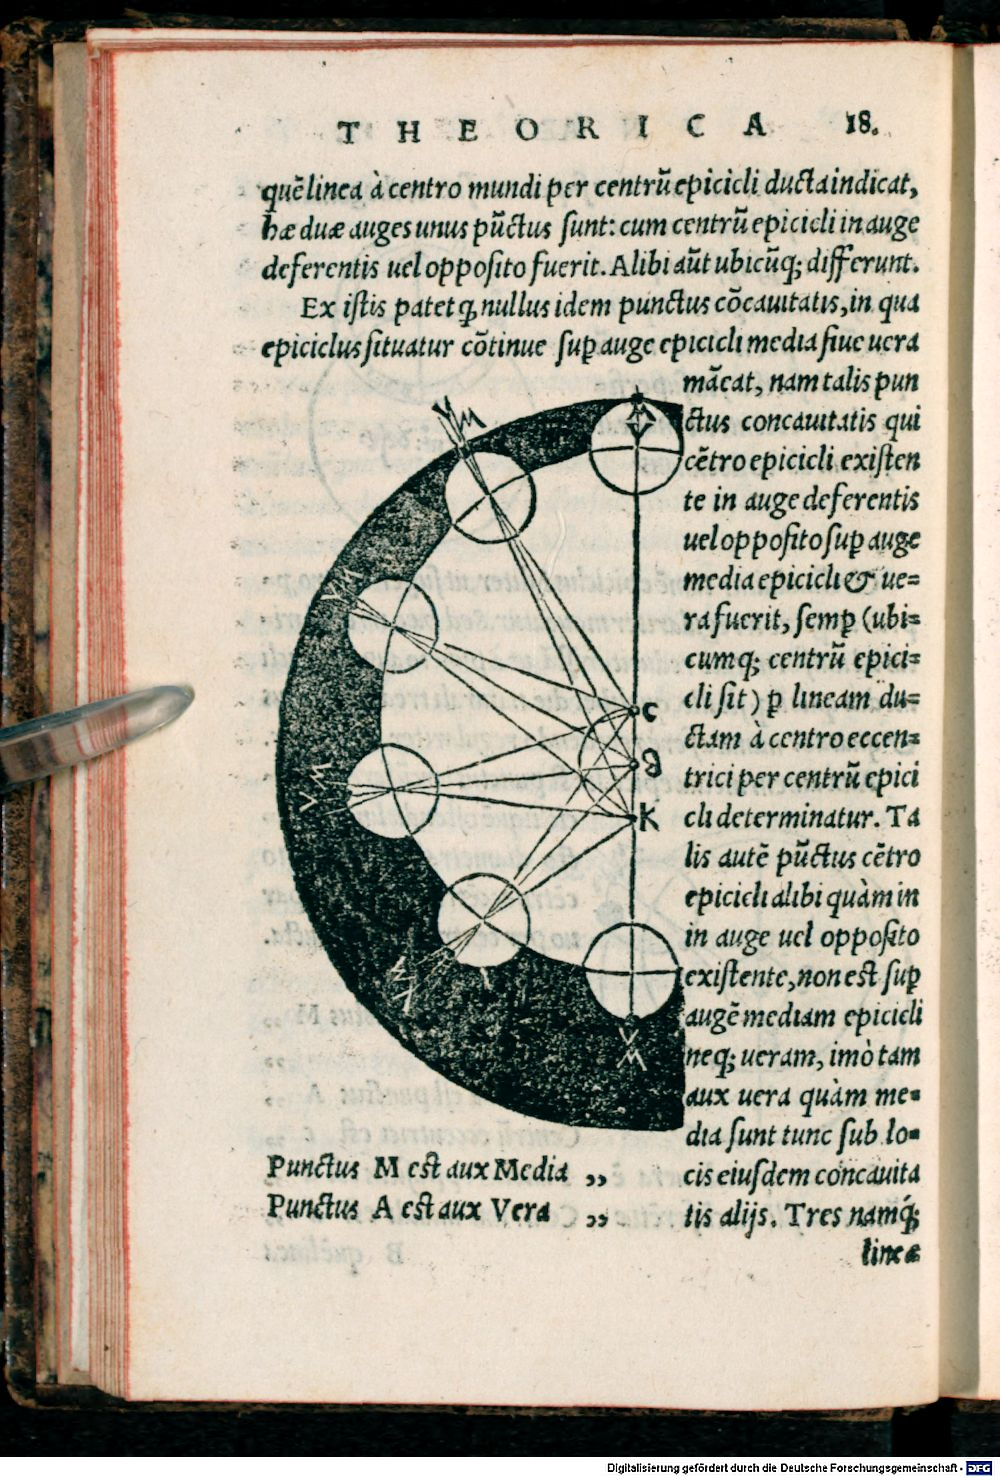 THEORICA 18.
quē linea à centro mundi per centrū epicicli ducta indicat,
hæ duæ auges unus pūctus sunt: cum centrū epicicli in auge
deferentis uel opposito fuerit. Alibi aūt ubicūq; differunt.
Ex istis patet ꝙ nullus idem punctus cōcauitatis, in qua
epiciclus situatur cōtinue sup̱ auge epicicli media siue uera
mācat, nam talis pun
ctus concauitatis qui
cētro epicicli existen
te in auge deferentis
uel opposito sup̱ auge
media epicicli & ue=
ra fuerit, semp̱ (ubi=
cumq; centrū epici=
cli sit) p̱ lineam du=
ctam à centro eccen=
trici per centrū epici
cli determinatur. Ta
lis autē pūctus cētro
epicicli alibi quàm in
in auge uel opposito
existente, non est sup̱
augē mediam epicicli
neq; ueram, imò tam
aux uera quàm me=
dia sunt tunc sub lo=
cis eiusdem concauita
tis alijs. Tres namq́;
lineæ
V M
M
V M
C
V M
K
V
M
V
M
Punctus M est aux Media „
Punctus A est aux Vera „
Digitalisierung gefördert durch die Deutsche Forschungsgemeinschaft - DFG